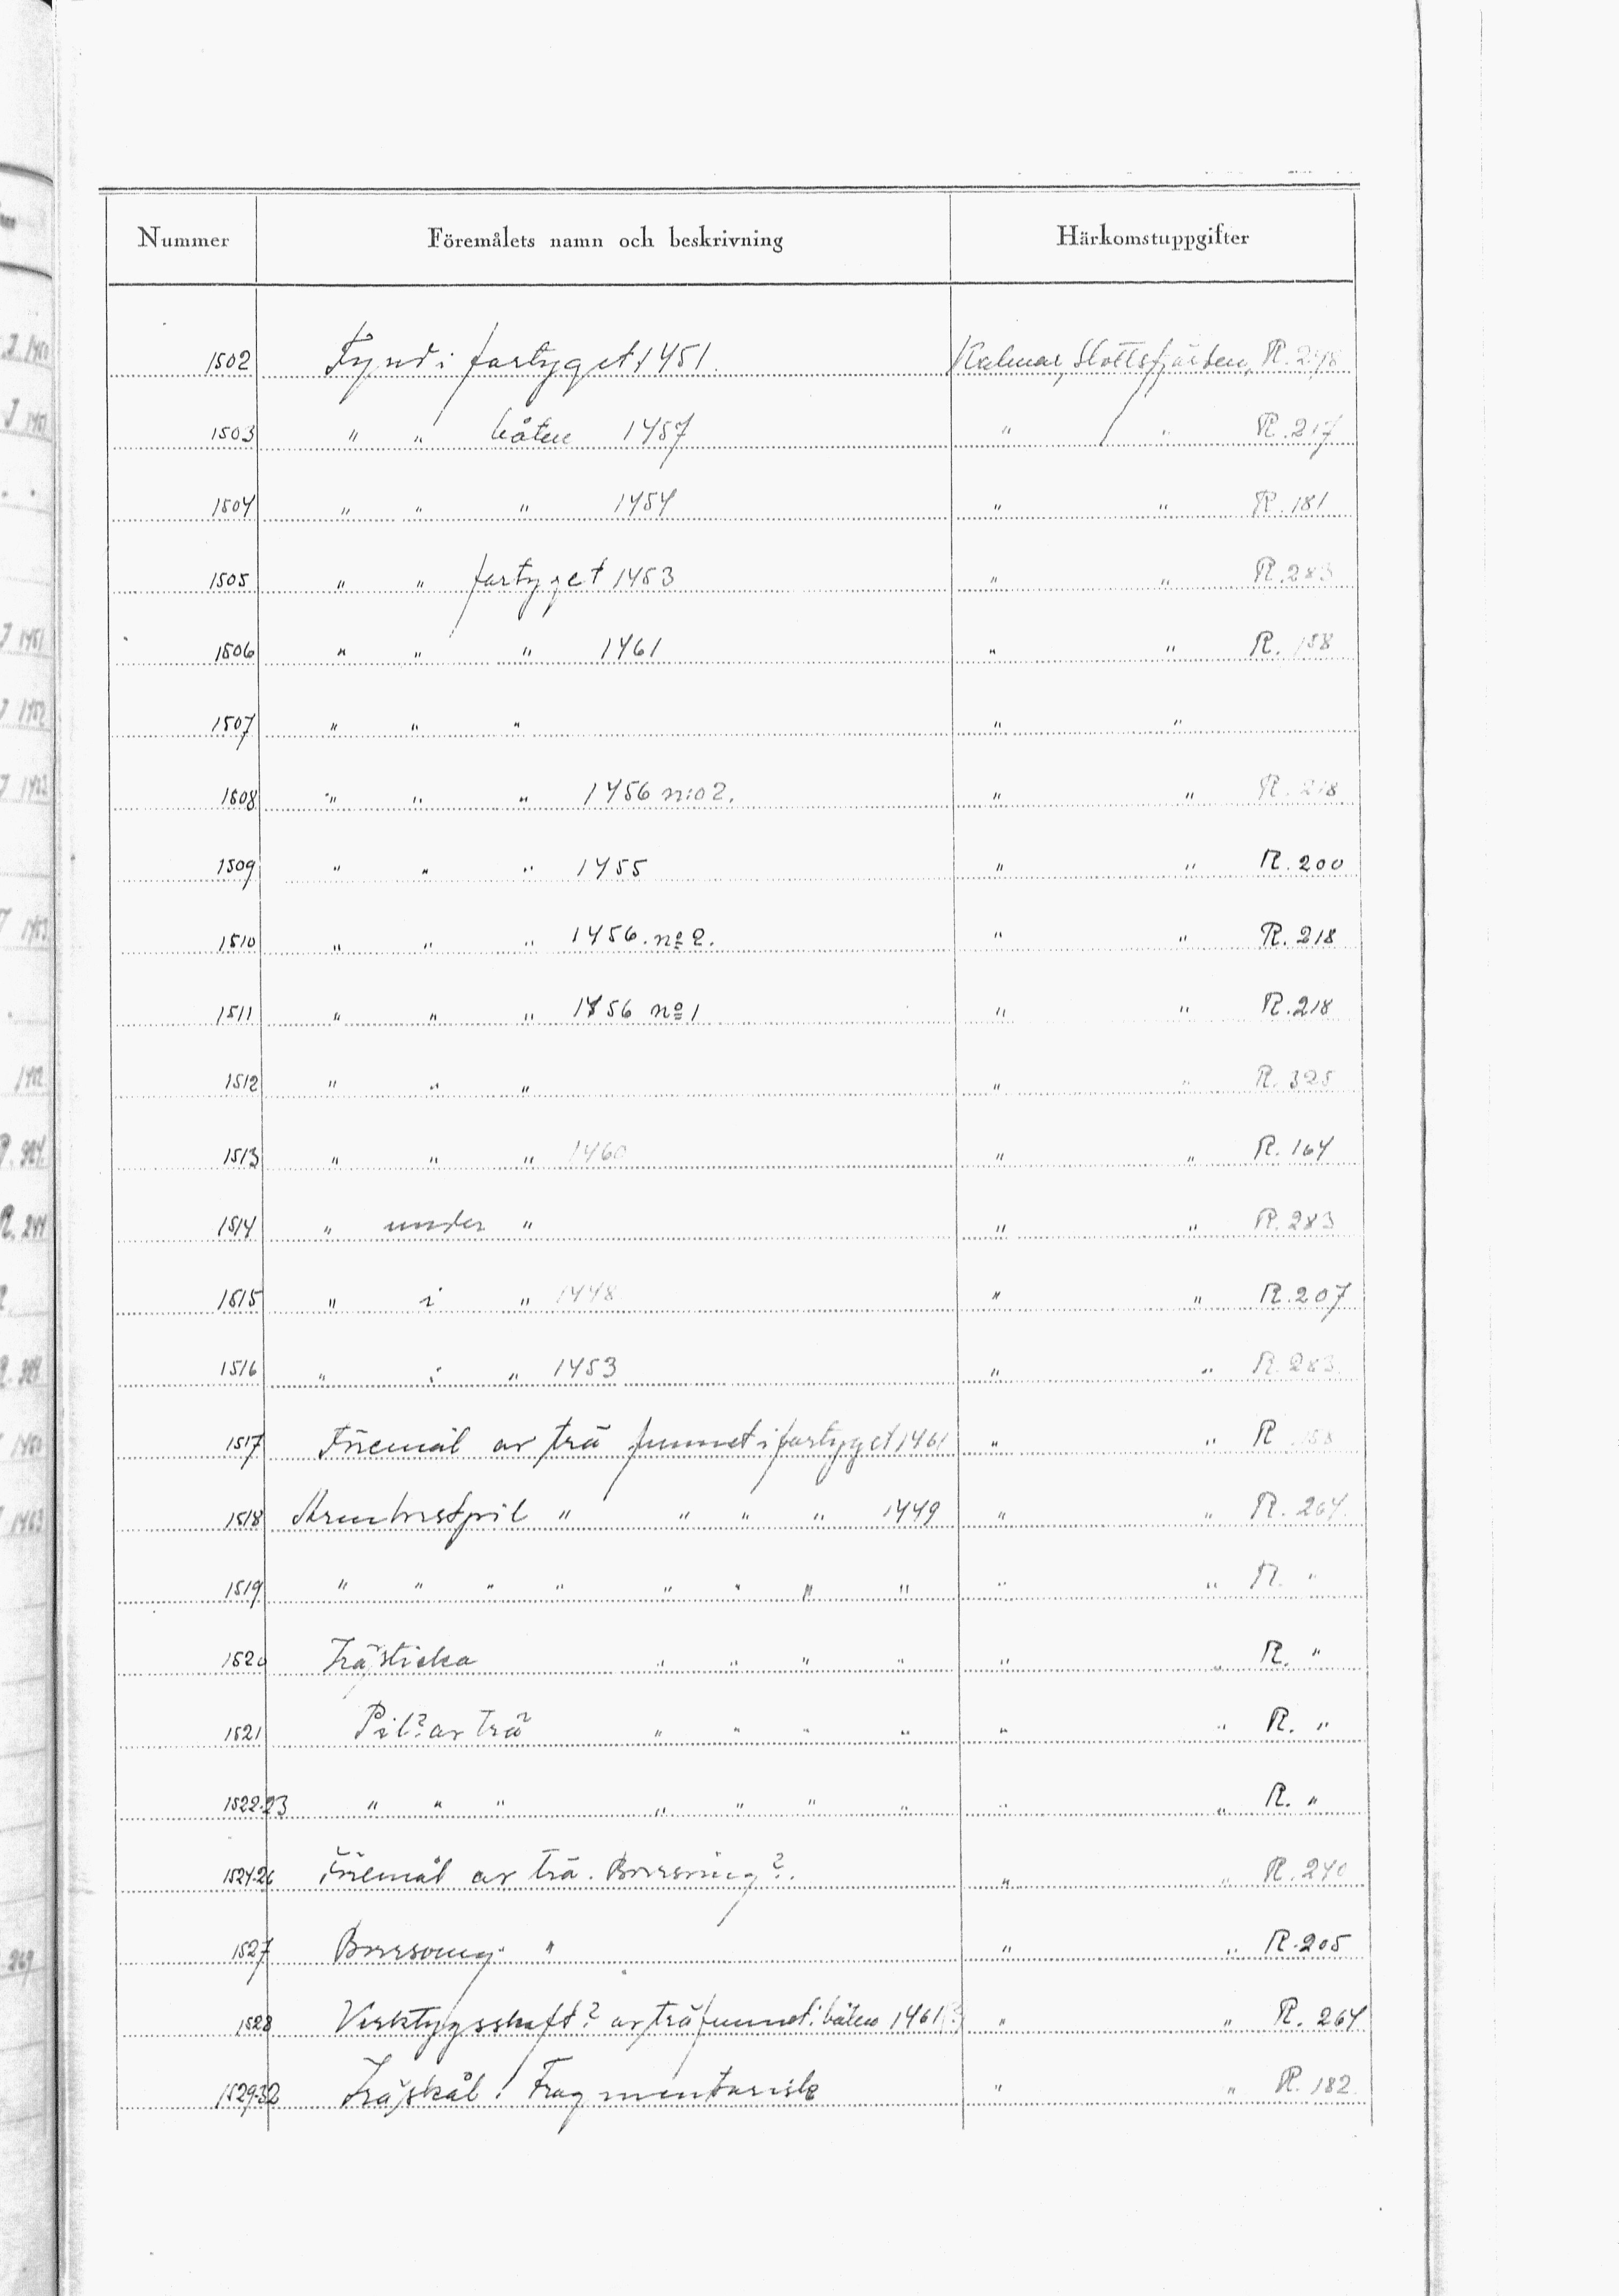 Nummer Föremålets namn och beskrivning Härkomstuppgifter
1502 Fynd i fartyget 1451. Kalmar, Slottsfjärden, R. 248
1503 " " båten 1457 " " R. 217
1504 " " " 1454 " " R. 181
1505 " " fartyget 1453 " " R. 283
1506 " " " 1461 " " R. 158
1507 " " " " "
1508 " " " 1456 n:o 2. " " R. 218
1509 " " " 1455 " " R. 200
1510 " " " 1456. nº 2. " " R. 218
1511 " " " 1456 nº 1 " " R. 218
1512 " " " " " R. 325
1513 " " " 1460 " " R. 164
1514 " under " " " R. 283
1515 " i " 1448 " " R. 207
1516 " i " 1453 " " R. 283.
1517 Föremål av trä funnet i fartyget 1461 " " R. 158
1518 Armborstpil " " " " 1449 " " R. 264.
1519 " " " " " " " " " " R. "
1520 Trästicka " " " " " " R. "
1521 Pil? av trä " " " " " " R. "
1522-23 " " " " " " " " " R. "
1524-26 Föremål av trä. Borrsving?. " " R. 240
1527 Borrsving. " " " R. 205
1528 Verktygsskaft? av trä funnet i båten 1461 " " R. 264
1529-32 Träskål. Fragmentarisk " " R. 182.
J 1450
J 1451
J 1451
J 1452
J 1453
R. 324.
R. 244